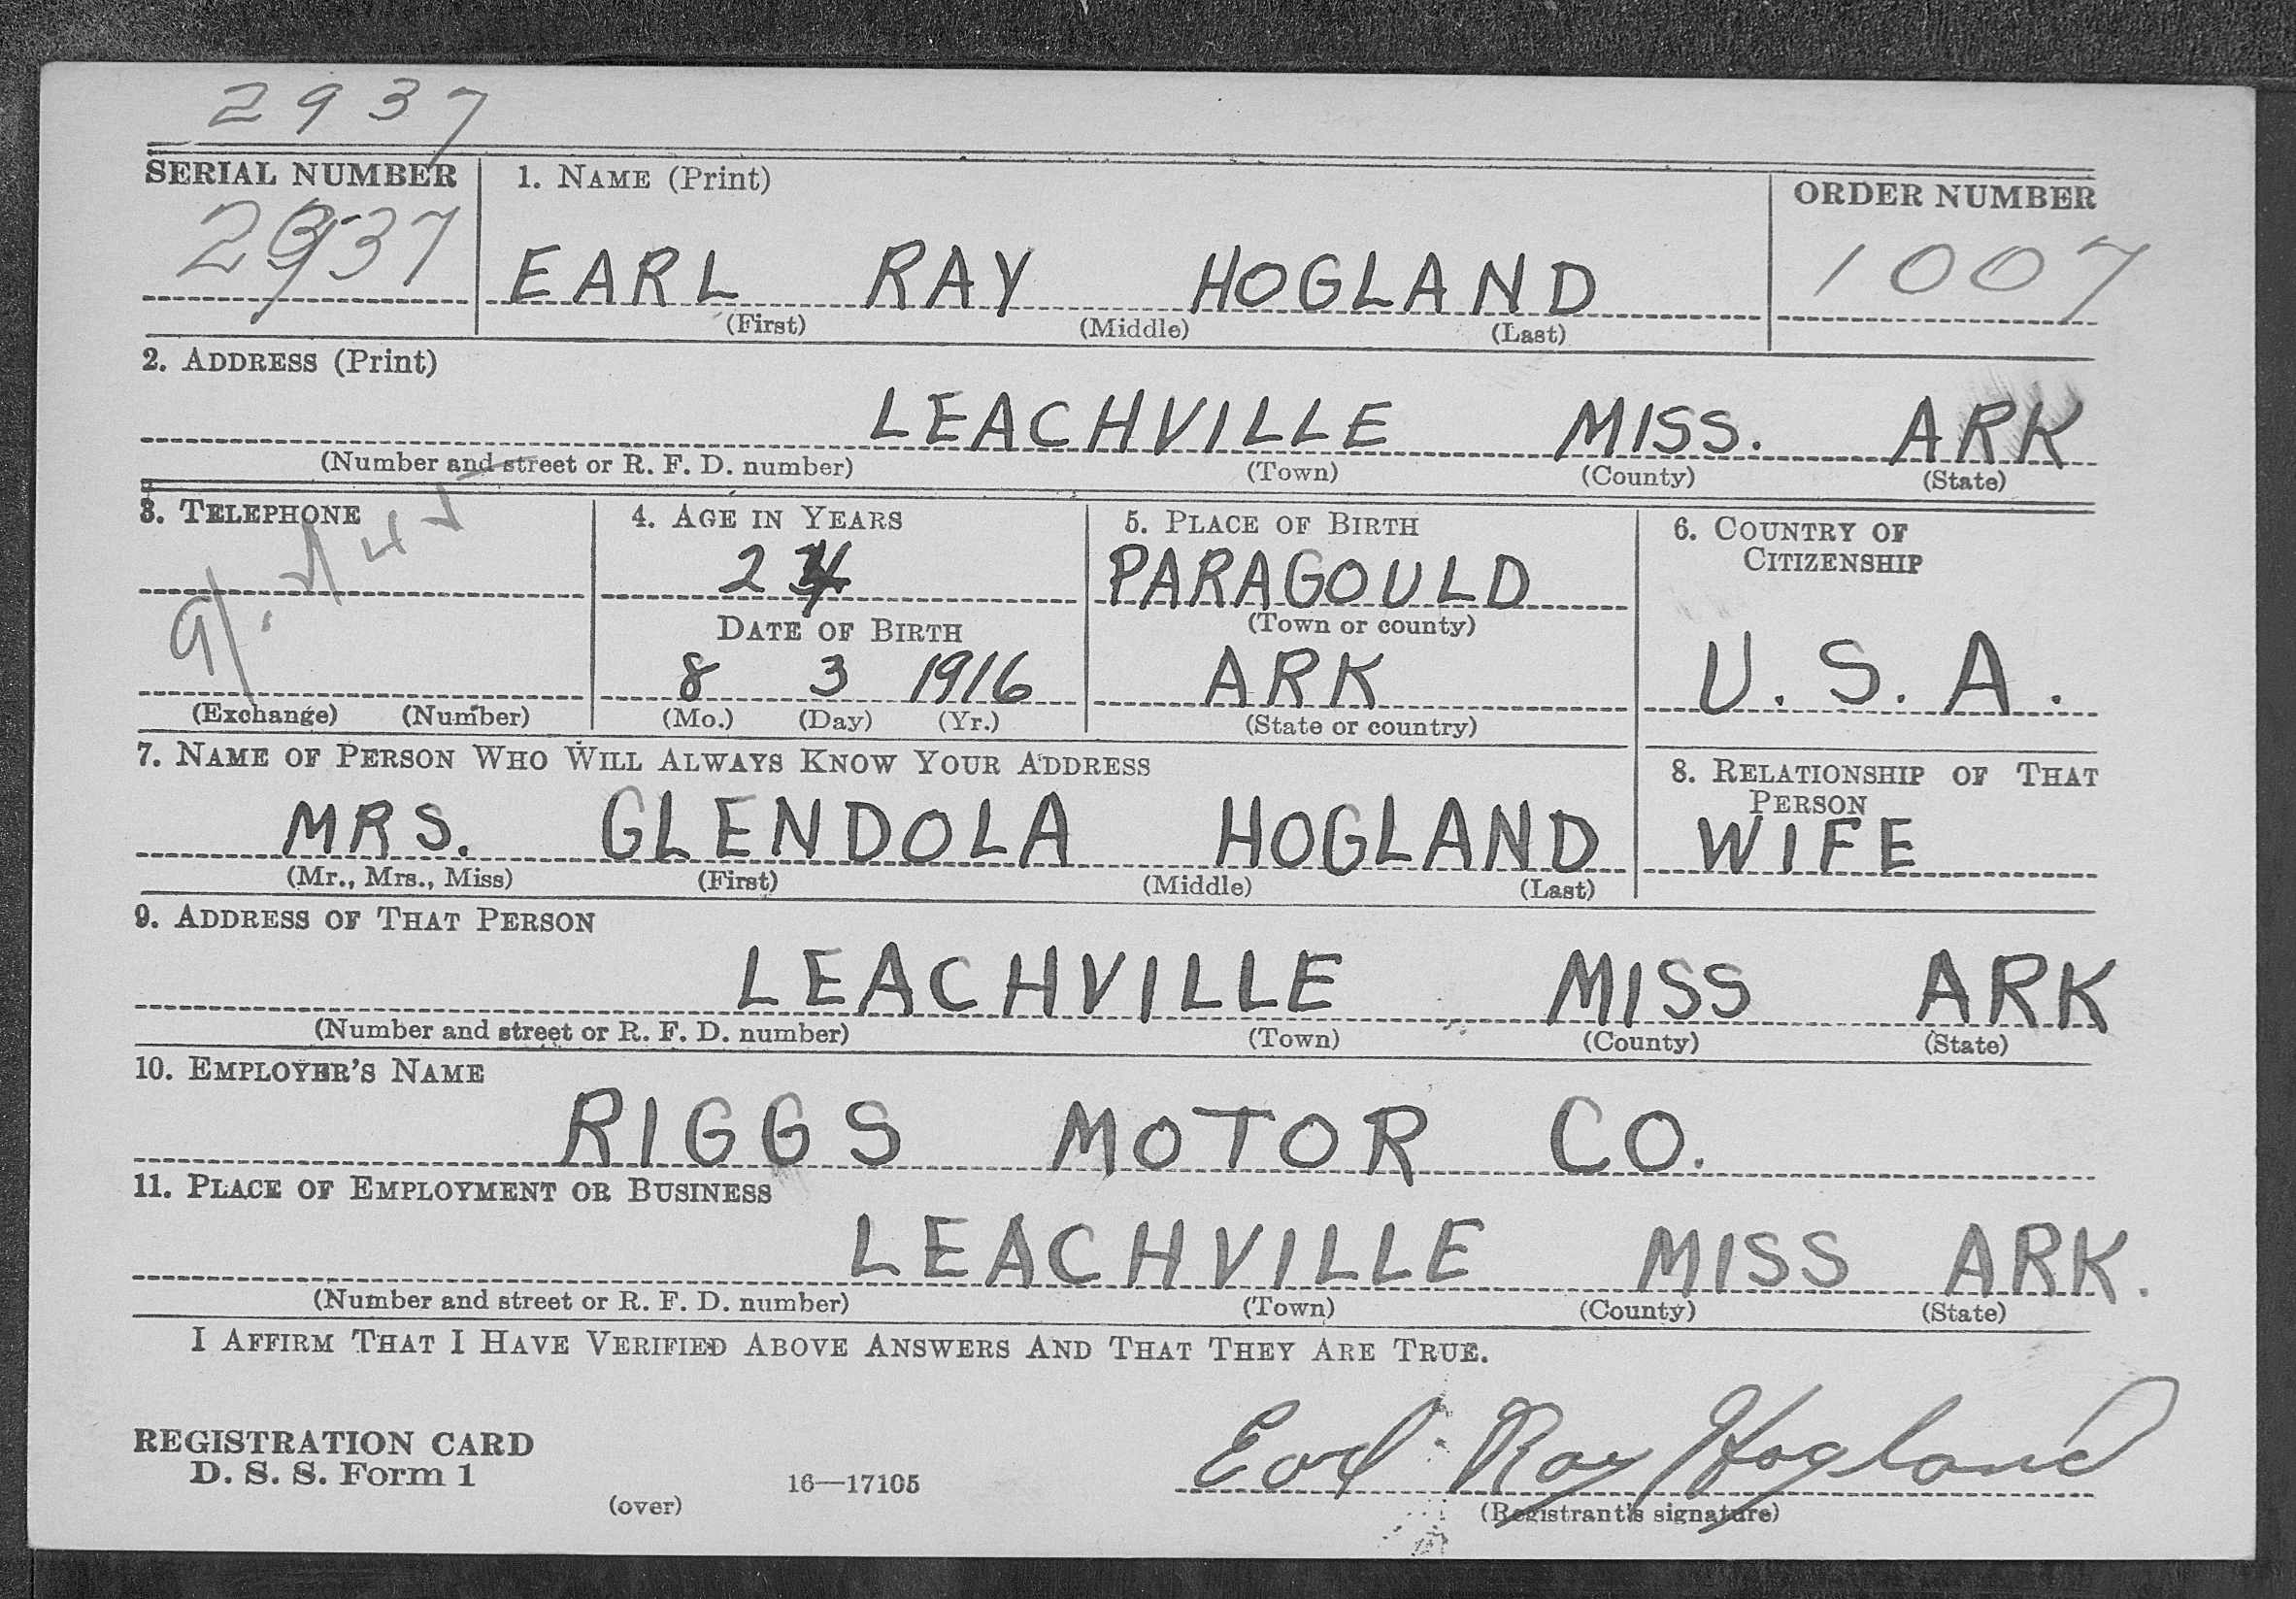 2937
SERIAL NUMBER
1. NAME (Print)
ORDER NUMBER
2937
EARL RAY HOGLAND
1007
(First) (Middle) (Last)
2. ADDRESS (Print)
LEACHVILLE MISS. ARK
(Number and street or R. F. D. number) (Town) (County) (State)
3. TELEPHONE
4. AGE IN YEARS
5. PLACE OF BIRTH
6. COUNTRY OF
CITIZENSHIP
24
PARAGOULD
DATE OF BIRTH
(Town or county)
8 3 1916
ARK
U.S.A.
(Exchange) (Number)
(Mo.) (Day) (Yr.)
(State or country)
7. NAME OF PERSON WHO WILL ALWAYS KNOW YOUR ADDRESS
8. RELATIONSHIP OF THAT
PERSON
MRS. GLENDOLA HOGLAND
WIFE
(Mr., Mrs., Miss) (First) (Middle) (Last)
9. ADDRESS OF THAT PERSON
LEACHVILLE MISS ARK
(Number and street or R. F. D. number) (Town) (County) (State)
10. EMPLOYER'S NAME
RIGGS MOTOR CO.
11. PLACE OF EMPLOYMENT OR BUSINESS
LEACHVILLE MISS ARK.
(Number and street or R. F. D. number) (Town) (County) (State)
I AFFIRM THAT I HAVE VERIFIED ABOVE ANSWERS AND THAT THEY ARE TRUE.
REGISTRATION CARD
D. S. S. Form 1
(over)
16—17105
Earl Ray Hogland
(Registrant's signature)